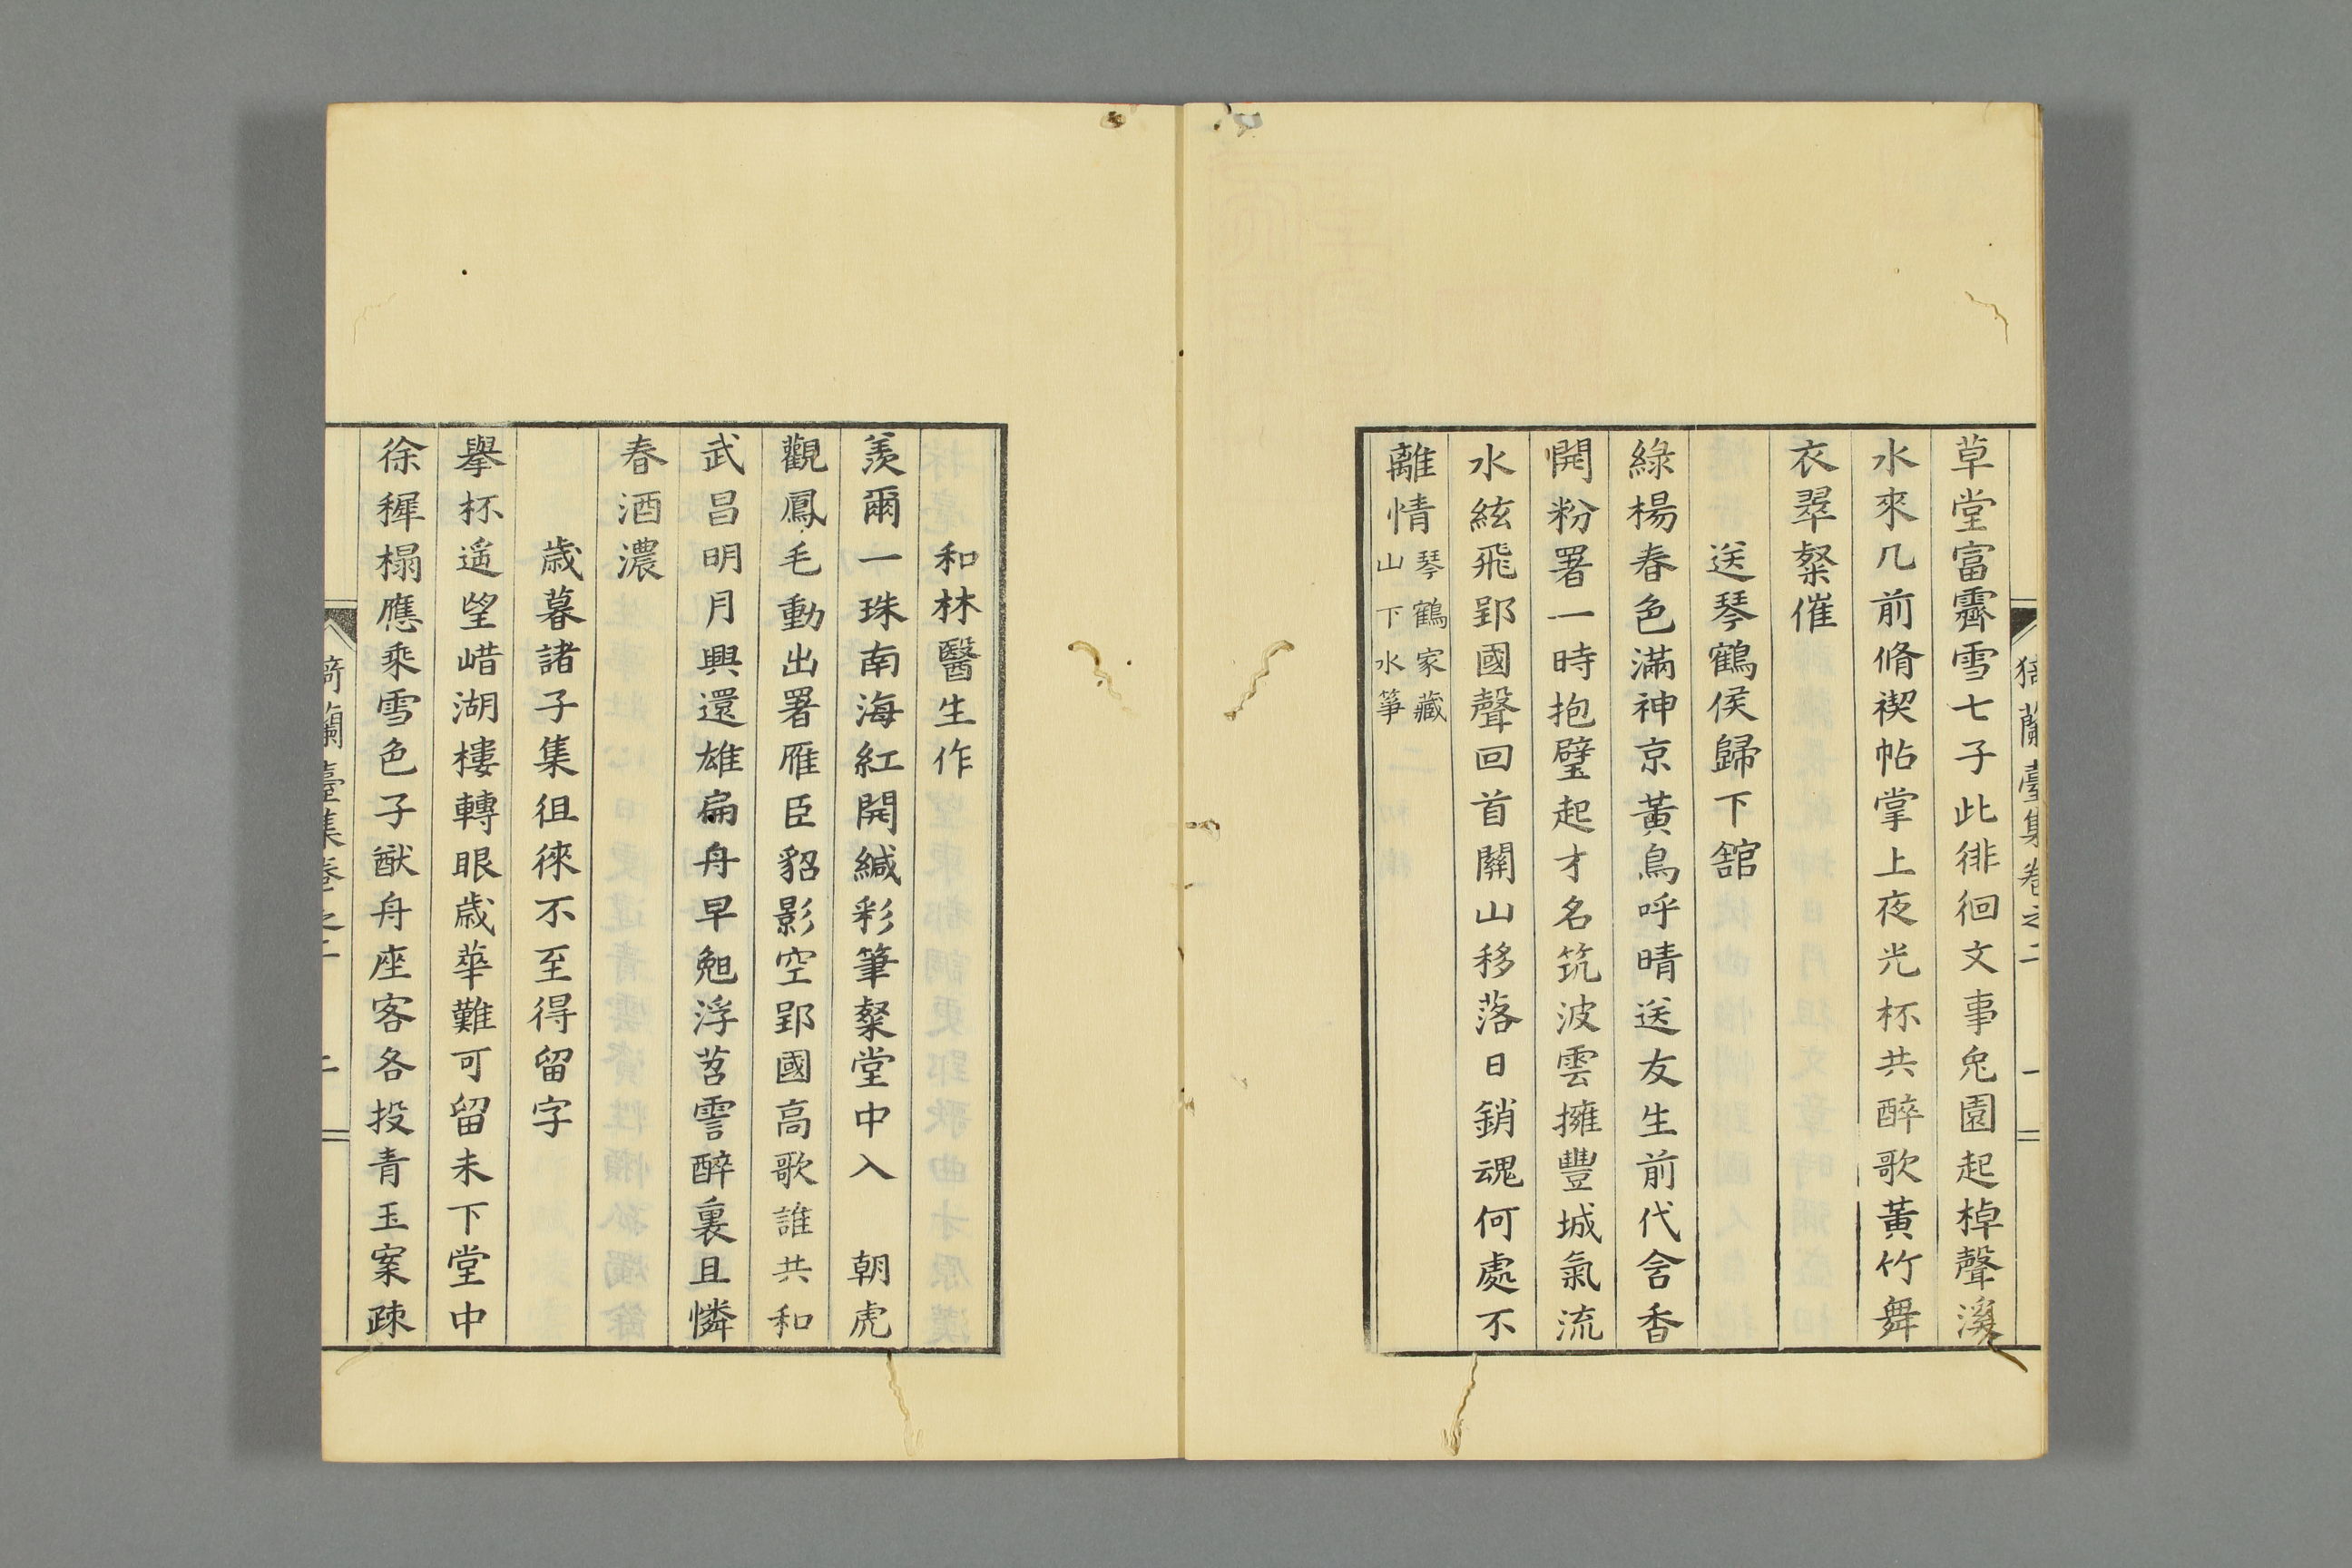 猗蘭臺集卷之二 一
草堂富霽雪七子此徘徊文事兔園起棹聲溪
水來几前脩禊帖掌上夜光杯共醉歌黃竹舞
衣翠粲催
送琴鶴侯歸下舘
綠楊春色滿神京黃鳥呼晴送友生前代含香
開粉署一時抱璧起才名筑波雲擁豐城氣流
水絃飛郢國聲回首關山移落日銷魂何處不
離情琴鶴家藏
山下水箏
和林醫生作
羨爾一珠南海紅開緘彩筆粲堂中入 朝虎
觀鳳毛動出署雁臣貂影空郢國高歌誰共和
武昌明月興還雄扁舟早勉浮苕霅醉裏且憐
春酒濃
歲暮諸子集徂徠不至得留字
擧杯遙望㟙湖樓轉眼歲華難可留未下堂中
徐穉榻應乘雪色子猷舟座客各投青玉案疎
猗蘭臺集卷之二 二